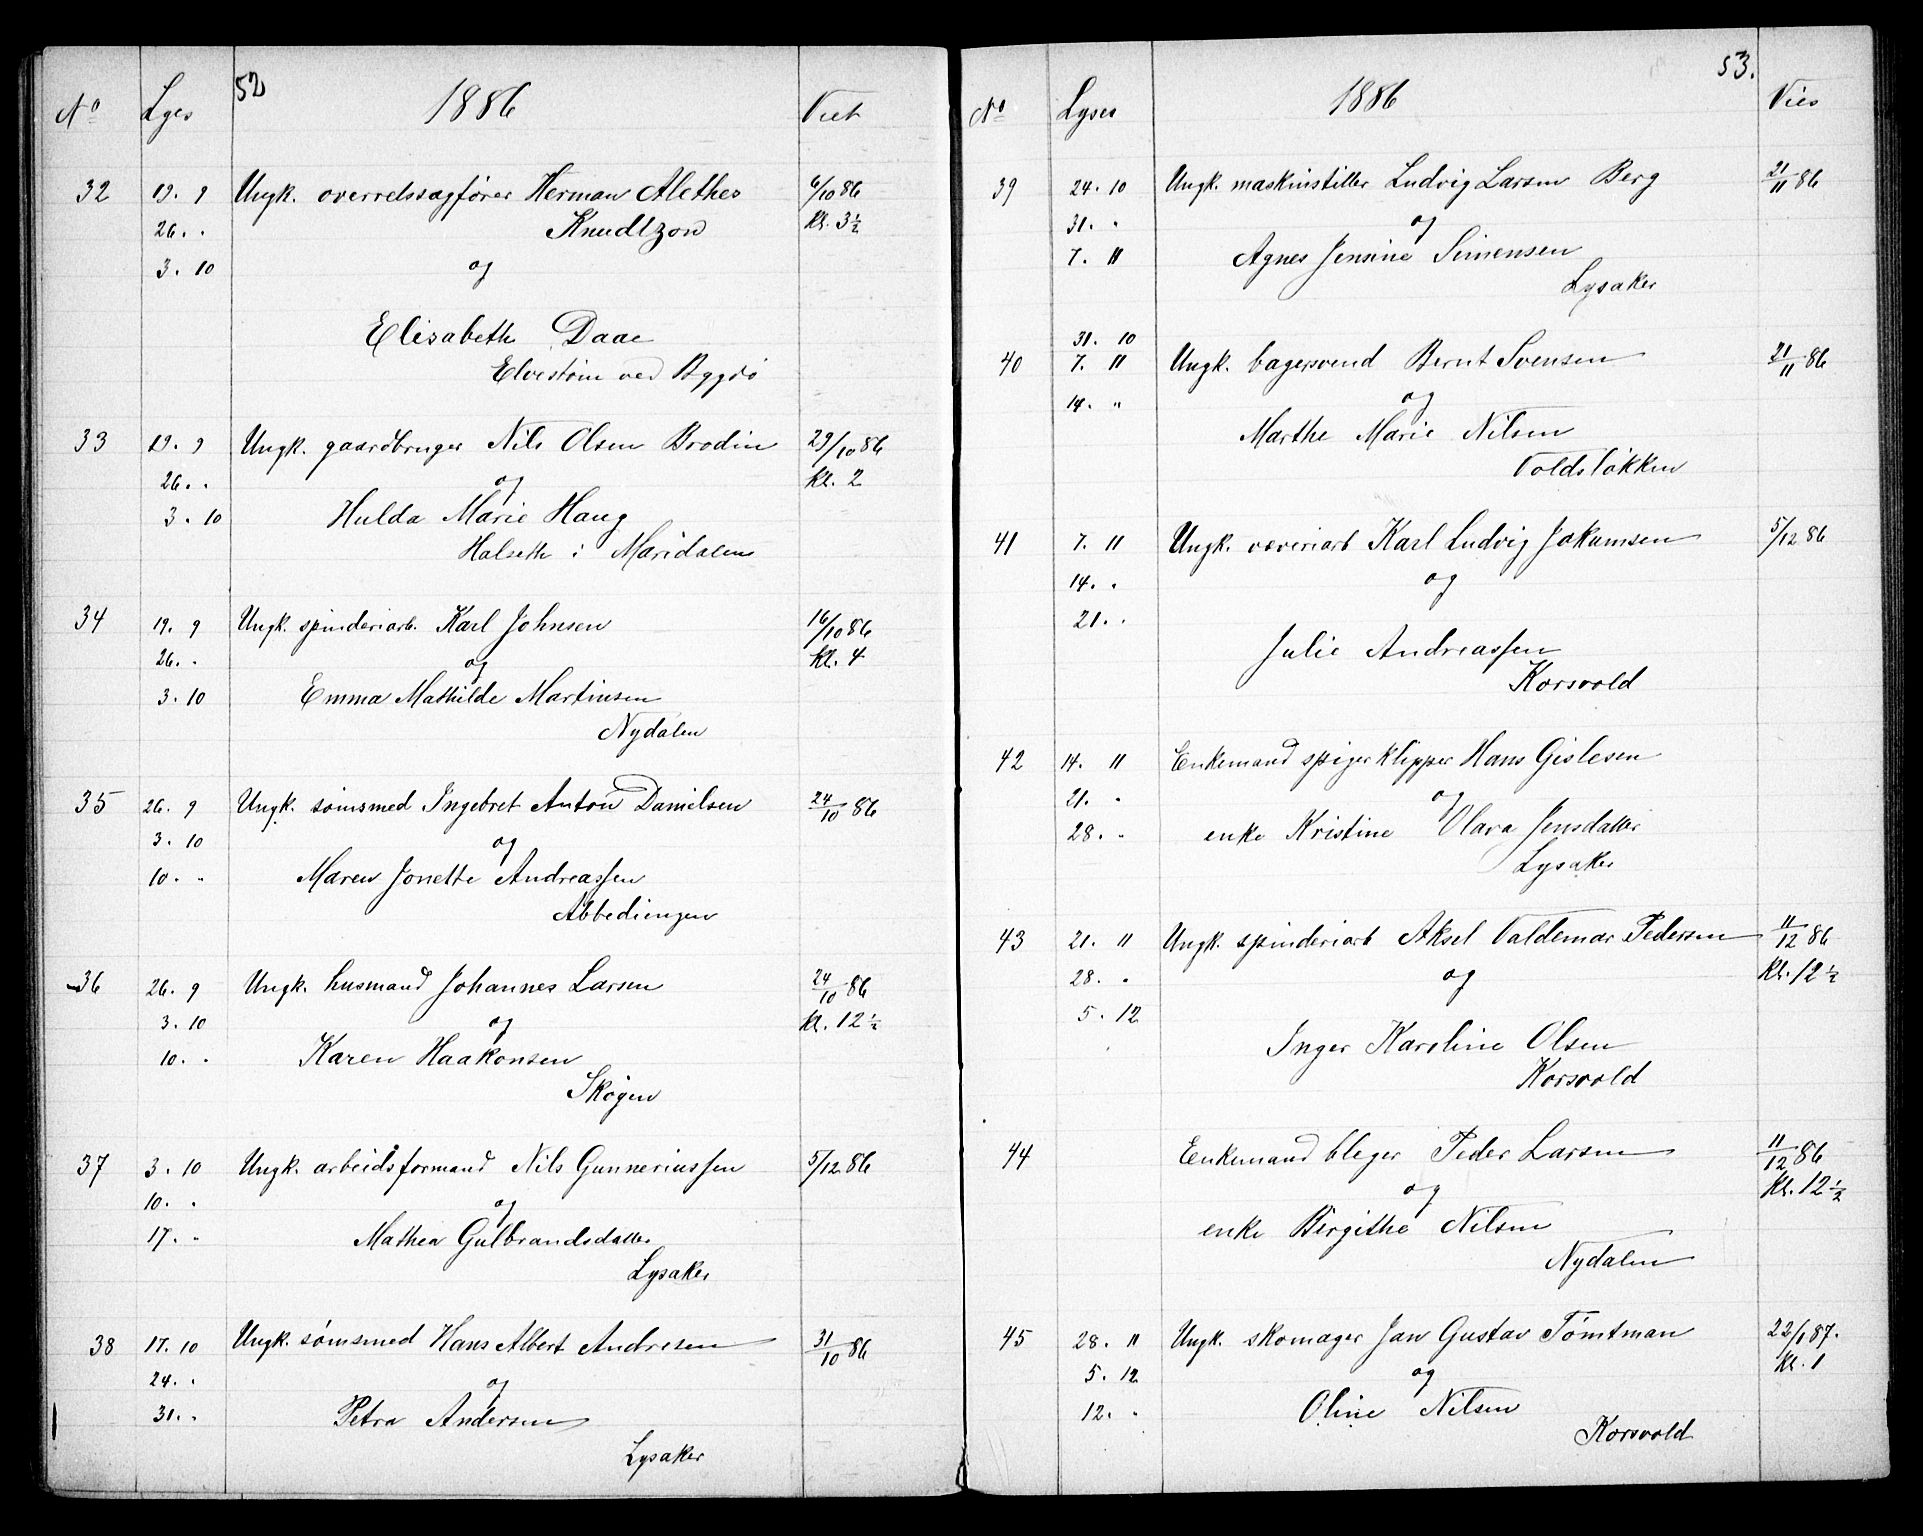 52
1886
No Lyses Viet
32 19. 9 Ungk. overretssagfører Herman Alethes 6/10 86
26. " Knudtzon Kl. 3½
3. 10 og
Elisabeth Daae
ved Bygdø
33 19. 9 Ungk. gaardbruger Nils Olsen Brodin 29/10 86
26. " og Kl. 2
3. 10 Hulda Marie Haug
Halseth i Maridalen
34 19. 9 Ungk. spinderiarb. Karl Johnsen 16/10 86
26. " og Kl. 4
3. 10 Emma Mathilde Martinsen
Nydalen
35 26. 9 Ungk. sømsmed Ingebret Anton Danielsen 24/10 86
3. 10 og
10. " Maren Jonette Andreassen
Abbediengen
36 26. 9 Ungk. husmand Johannes Larsen 24/10 86
3. 10 og Kl. 12½
10. " Karen Haakonsen
Skøgen
37 3. 10 Ungk. arbeidsformand Nils Gunneriussen 5/12 86
10. " og
17. " Mathea Gulbrandsdatter
Lysaker
38 17. 10 Ungk. sømsmed Hans Albert Andresen 31/10 86
24. " og
31. " Petra Andersen
Lysaker
53.
1886
No Lyses Vies
39 24. 10 Ungk. maskinstiller Ludvig Larsen Berg 21/11 86
31. " og
7. 11 Agnes Jensine Simensen
Lysaker
31. 10
40 7. 11 Ungk. bagersvend Bernt Svensen 21/11 86
14. " og
Marthe Marie Nilsen
Voldsløkken
41 7. 11 Ungk. væveriarb Karl Ludvig Jokumsen 5/12 86
14. " og
21. "
Julie Andreassen
Korsvold
42 14. 11 Enkemand spigerklipper Hans Gislesen
21. " og
28. " enke Kristine Olava Jensdatter
Lysaker
43 21. 11 Ungk. spinderiarb Aksel Valdemar Pedersen 11/12 86
28. " og Kl. 12½
5. 12
Inger Karoline Olsen
Korsvold
44 Enkemand bleger Peder Larsen 11/12 86
og Kl. 12½
enke Birgithe Nilsen
Nydalen
45 28. 11 Ungk. skomager Jan Gustav Tömtman 22/1 87.
5. 12 og Kl. 1
12. " Oline Nilsen
Korsvold